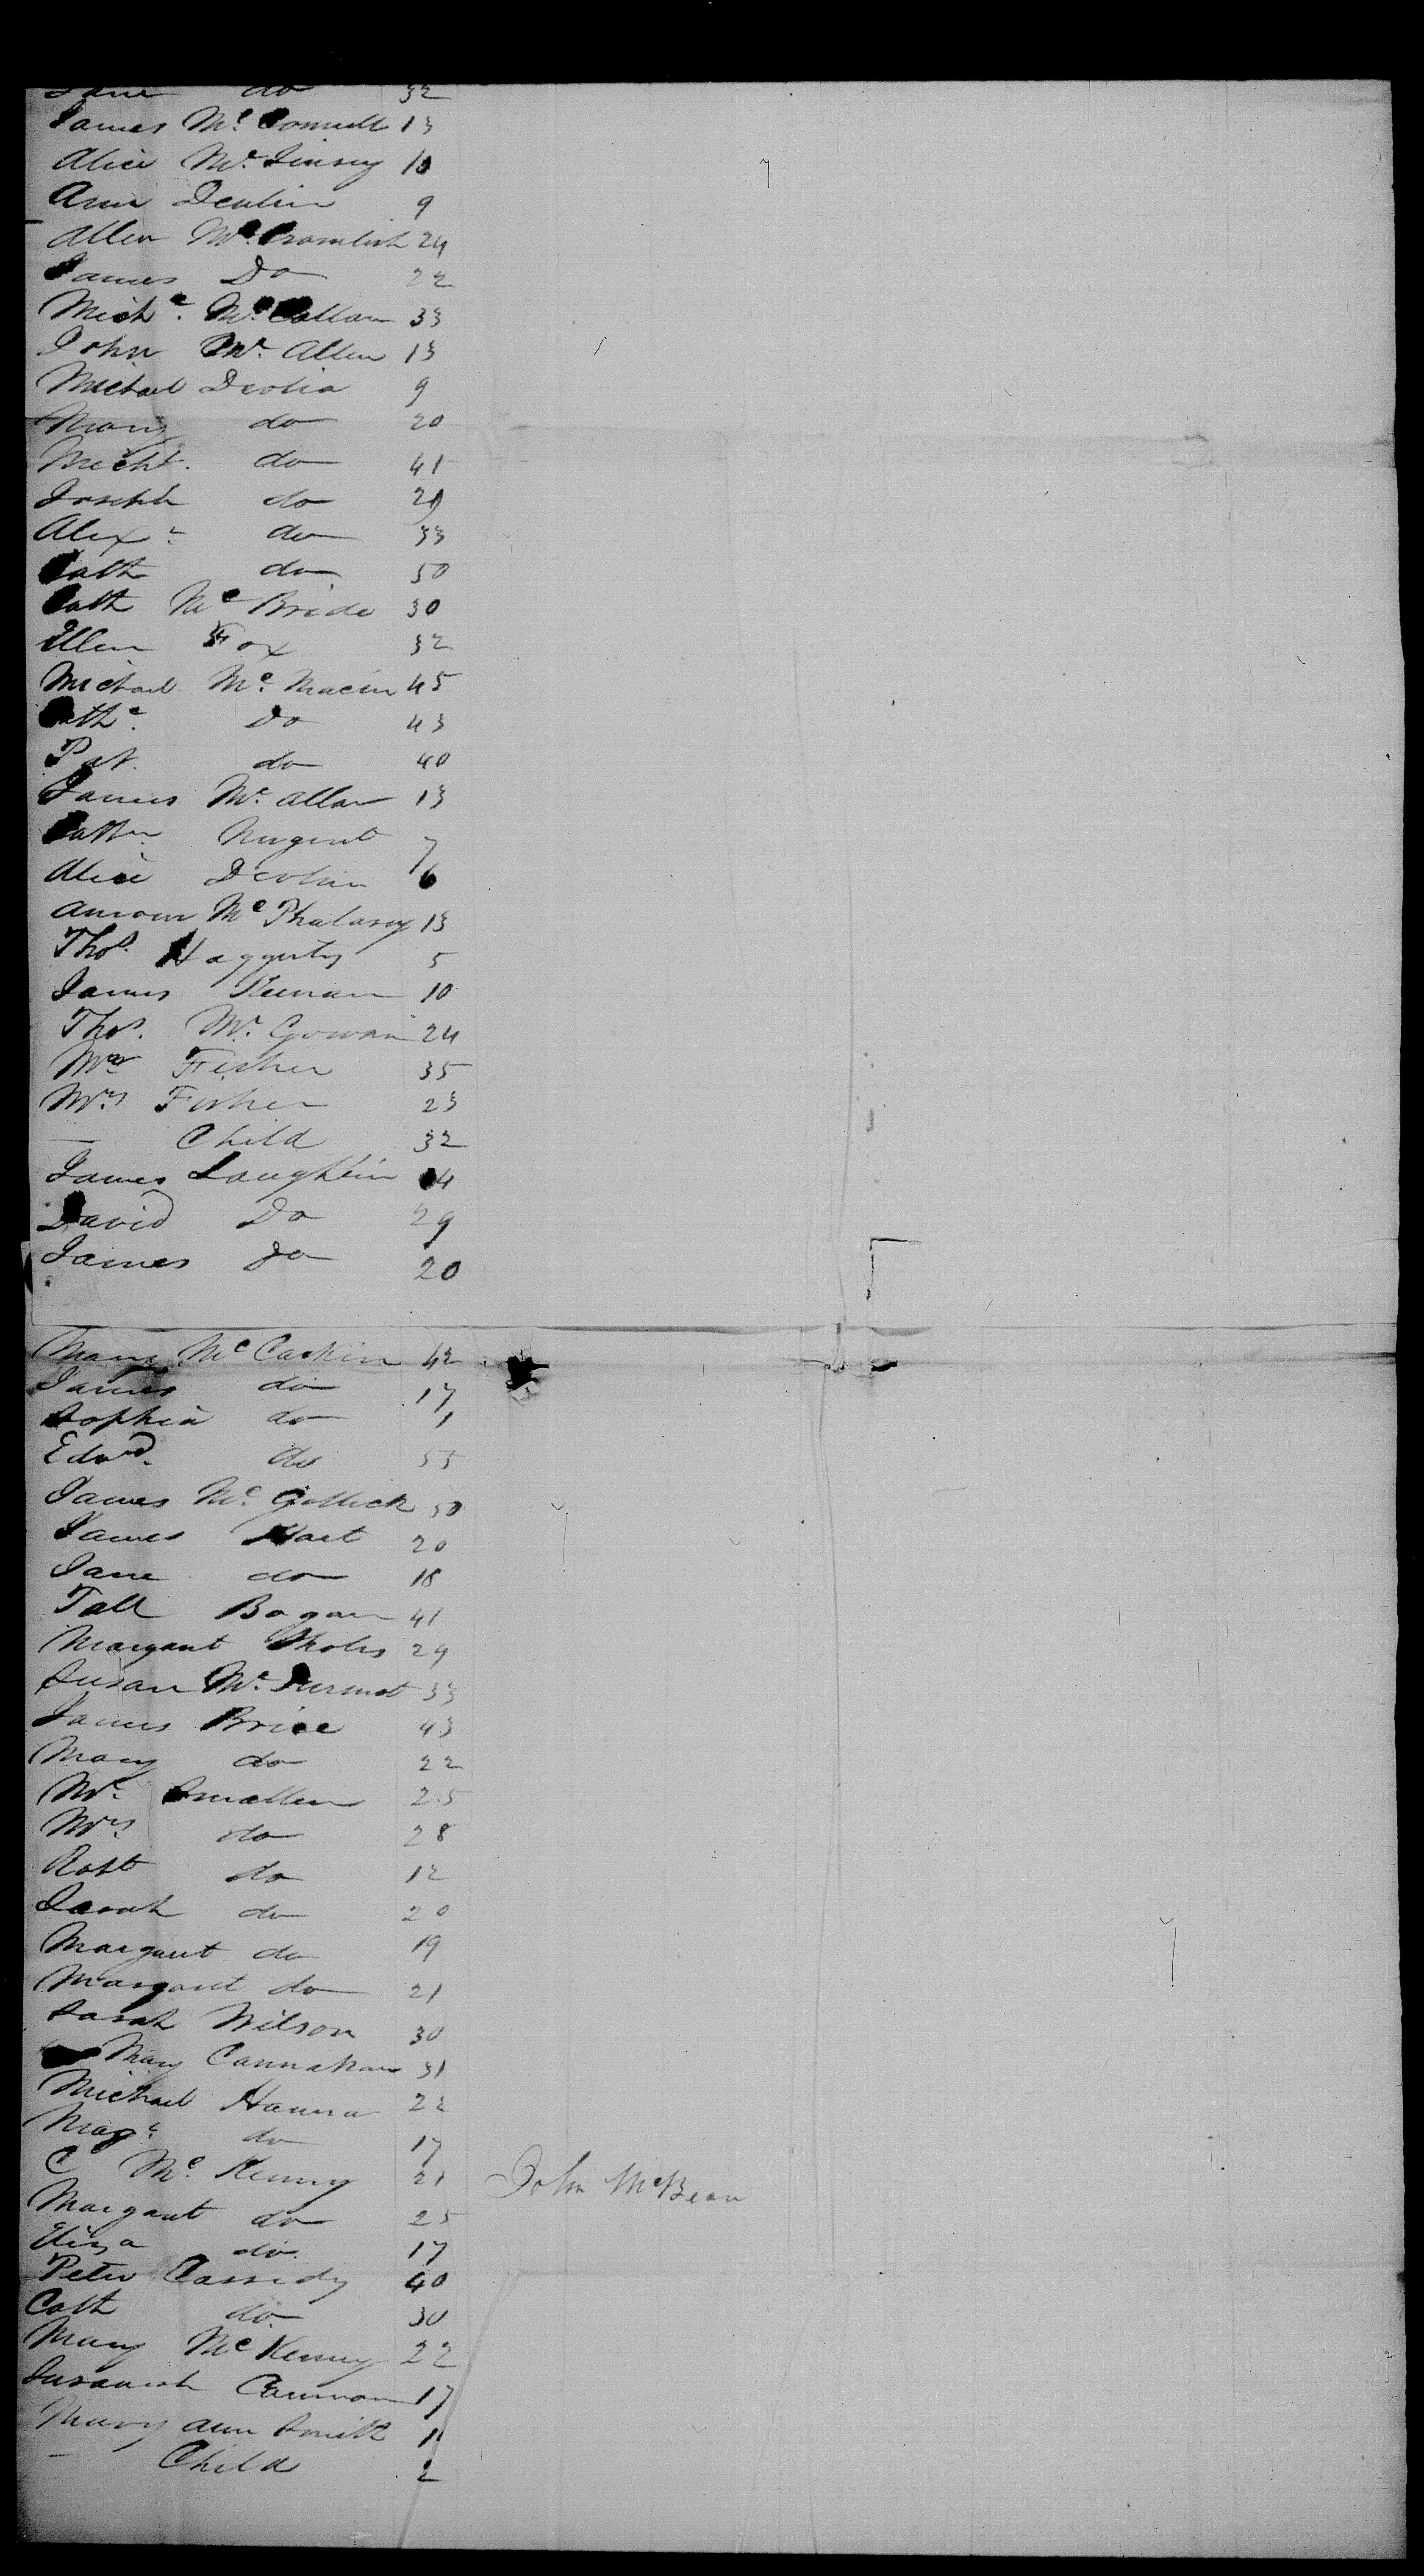 Jane do 32
James Mc Connell 13
Alice Mc 10
Ann Devlin 9
Allen Mc 24
James Do 22
Miche. Mc Callan 33
John Mc Allen 13
Michael Devlin 9
Mary do 20
Michl. do 41
Joseph do 29
Alexr do 33
Cath do 50
Cath Mc Bride 30
Ellen Fox 32
Michael Mc 45
Cathe. Do 43
Pat. do 40
James Mc Allan 13
Cathn Nugent 7
Alice Devlin 6
Mc 13
Thos. Haggerty 5
James Keenan 10
Thos. Mc Gowan 24
Mr Fisher 35
Mrs Fisher 23
— Child 32
James Laughlin 4
David Do 29
James Do 20
Mary Mc Caskin 42
James do 17
Sophia do 1
Edwd. do 55
James Mc Gollick 50
James Hart 20
Jane do 18
Tall Bogan 41
Margaret 29
Susan Mc Dermot 33
James Brice 43
Mary do 22
Mr. Smallen 25
Mrs do 28
Robt do 12
Sarah do 20
Margaret do 19
Margaret do 21
Sarah Wilson 30
Mary Cannahan 31
Michael Hanna 22
Magt do 17
C Mc Kenny 21 John McBean
Margaret do 25
Eliza do 17
Peter Cassidy 40
Cath do 30
Mary Mc Kenny 22
Susannah Cannon 17
Mary Ann Smith 1
— Child 2